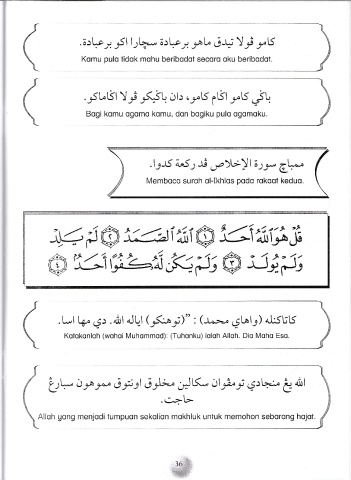 كامو ڤولا تيدق ماهو برعبادة سچارا اكو برعبادة.
Kamu pula tidak mahu beribadat secara aku beribadat.
باݢي كامو اݢام كامو، دان باݢيكو ڤولا اݢاماكو.
Bagi kamu agama kamu, dan bagiku pula agamaku.
ممباچ سورة الإخلاص ڤد ركعة كدوا.
Membaca surah al-Ikhlas pada rakaat kedua.
قُلْ هُوَ ٱللَّهُ أَحَدٌ ۝١ ٱللَّهُ ٱلصَّمَدُ ۝٢ لَمْ يَلِدْ
وَلَمْ يُولَدْ ۝٣ وَلَمْ يَكُن لَّهُۥ كُفُوًا أَحَدٌۢ ۝٤
كاتاكنله (واهاي محمد) : "(توهنكو) اياله الله. دي مها اسا.
Katakanlah (wahai Muhammad): (Tuhanku) ialah Allah. Dia Maha Esa.
الله يڠ منجادي تومڤوان سكالين مخلوق اونتوق موهون سبارڠ
حاجت.
Allah yang menjadi tumpuan sekalian makhluk untuk memohon sebarang hajat.
36